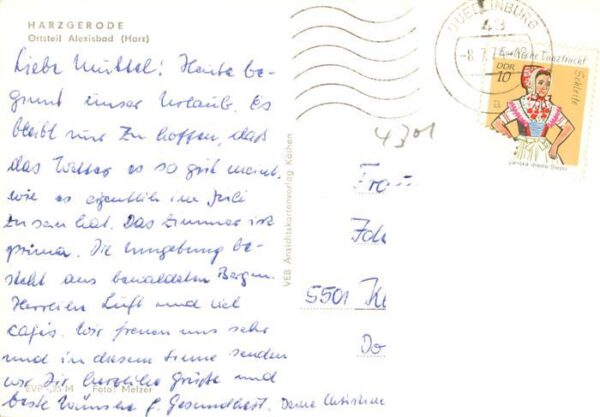 HARZGERODE
Ortsteil Alexisbad (Harz)
Liebe Muttel! Heute be-
ginnt unser Urlaub. Es
bleibt nur zu hoffen, daß
das Wetter es so gut meint,
wie es eigentlich im Juli
zu sein hat. Das Zimmer ist
prima. Die Umgebung be-
steht aus bewaldeten Bergen.
Herrliche Luft und viel
Wir freuen uns sehr
und in diesem Sinne senden
wir Dir herzliche Grüße und
beste Wünsche f. Gesundheit. Deine
EVP M Foto: Melzer
VEB Ansichtskartenverlag Köthen
QUEDLINBURG
43
-8.7.
a
Sorbische Tanztracht
Schleife
DDR
10
4301
Frau
5501
Do